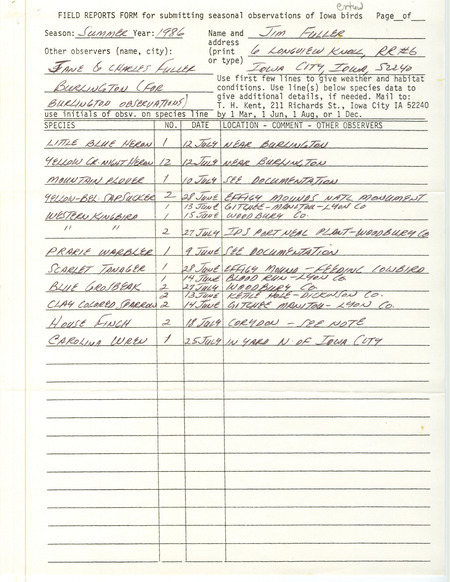 entered
FIELD REPORTS FORM for submitting seasonal observations of Iowa birds Page of
Season: SUMMER Year: 1986 Name and address (print or type) JIM FULLER
6 LONGVIEW KNOLL, RR#6
IOWA CITY, IOWA, 52240
Other observers (name, city):
JANE & CHARLES FULLER
BURLINGTON (FOR
BURLINGTON OBSERVATIONS)
use initials of obsv. on species line
Use first few lines to give weather and habitat
conditions. Use line(s) below species data to
give additional details, if needed. Mail to:
T. H. Kent, 211 Richards St., Iowa City IA 52240
by 1 Mar, 1 Jun, 1 Aug, or 1 Dec.
SPECIES NO. DATE LOCATION - COMMENT - OTHER OBSERVERS
LITTLE BLUE HERON 1 12 JULY NEAR BURLINGTON
YELLOW CR. NIGHT HERON 12 12 JULY NEAR BURLINGTON
MOUNTAIN PLOVER 1 10 JULY SEE DOCUMENTATION
YELLOW-BEL. SAPSUCKER 2 28 JUNE EFFIGY MOUNDS NATL MONUMENT
1 13 JUNE GITCHIE-MANITOU-LYON CO
WESTERN KINGBIRD 1 15 JUNE WOODBURY CO.
" " 2 27 JULY IPS PORT NEAL PLANT-WOODBURY CO
PRARIE WARBLER 1 9 JUNE SEE DOCUMENTATION
SCARLET TANAGER 1 28 JUNE EFFIGY MOUND - FEEDING COWBIRD
1 14 JUNE BLOOD RUN-LYON CO.
BLUE GROSBEAK 2 27 JULY WOODBURY CO.
2 13 JUNE KETTLE HOLE-DICKINSON CO.
CLAY COLORED SPARROW 2 14 JUNE GITCHIE MANITOU-LYON CO.
HOUSE FINCH 2 18 JULY CORYDON - SEE NOTE
CAROLINA WREN 1 25 JULY IN YARD N OF IOWA CITY